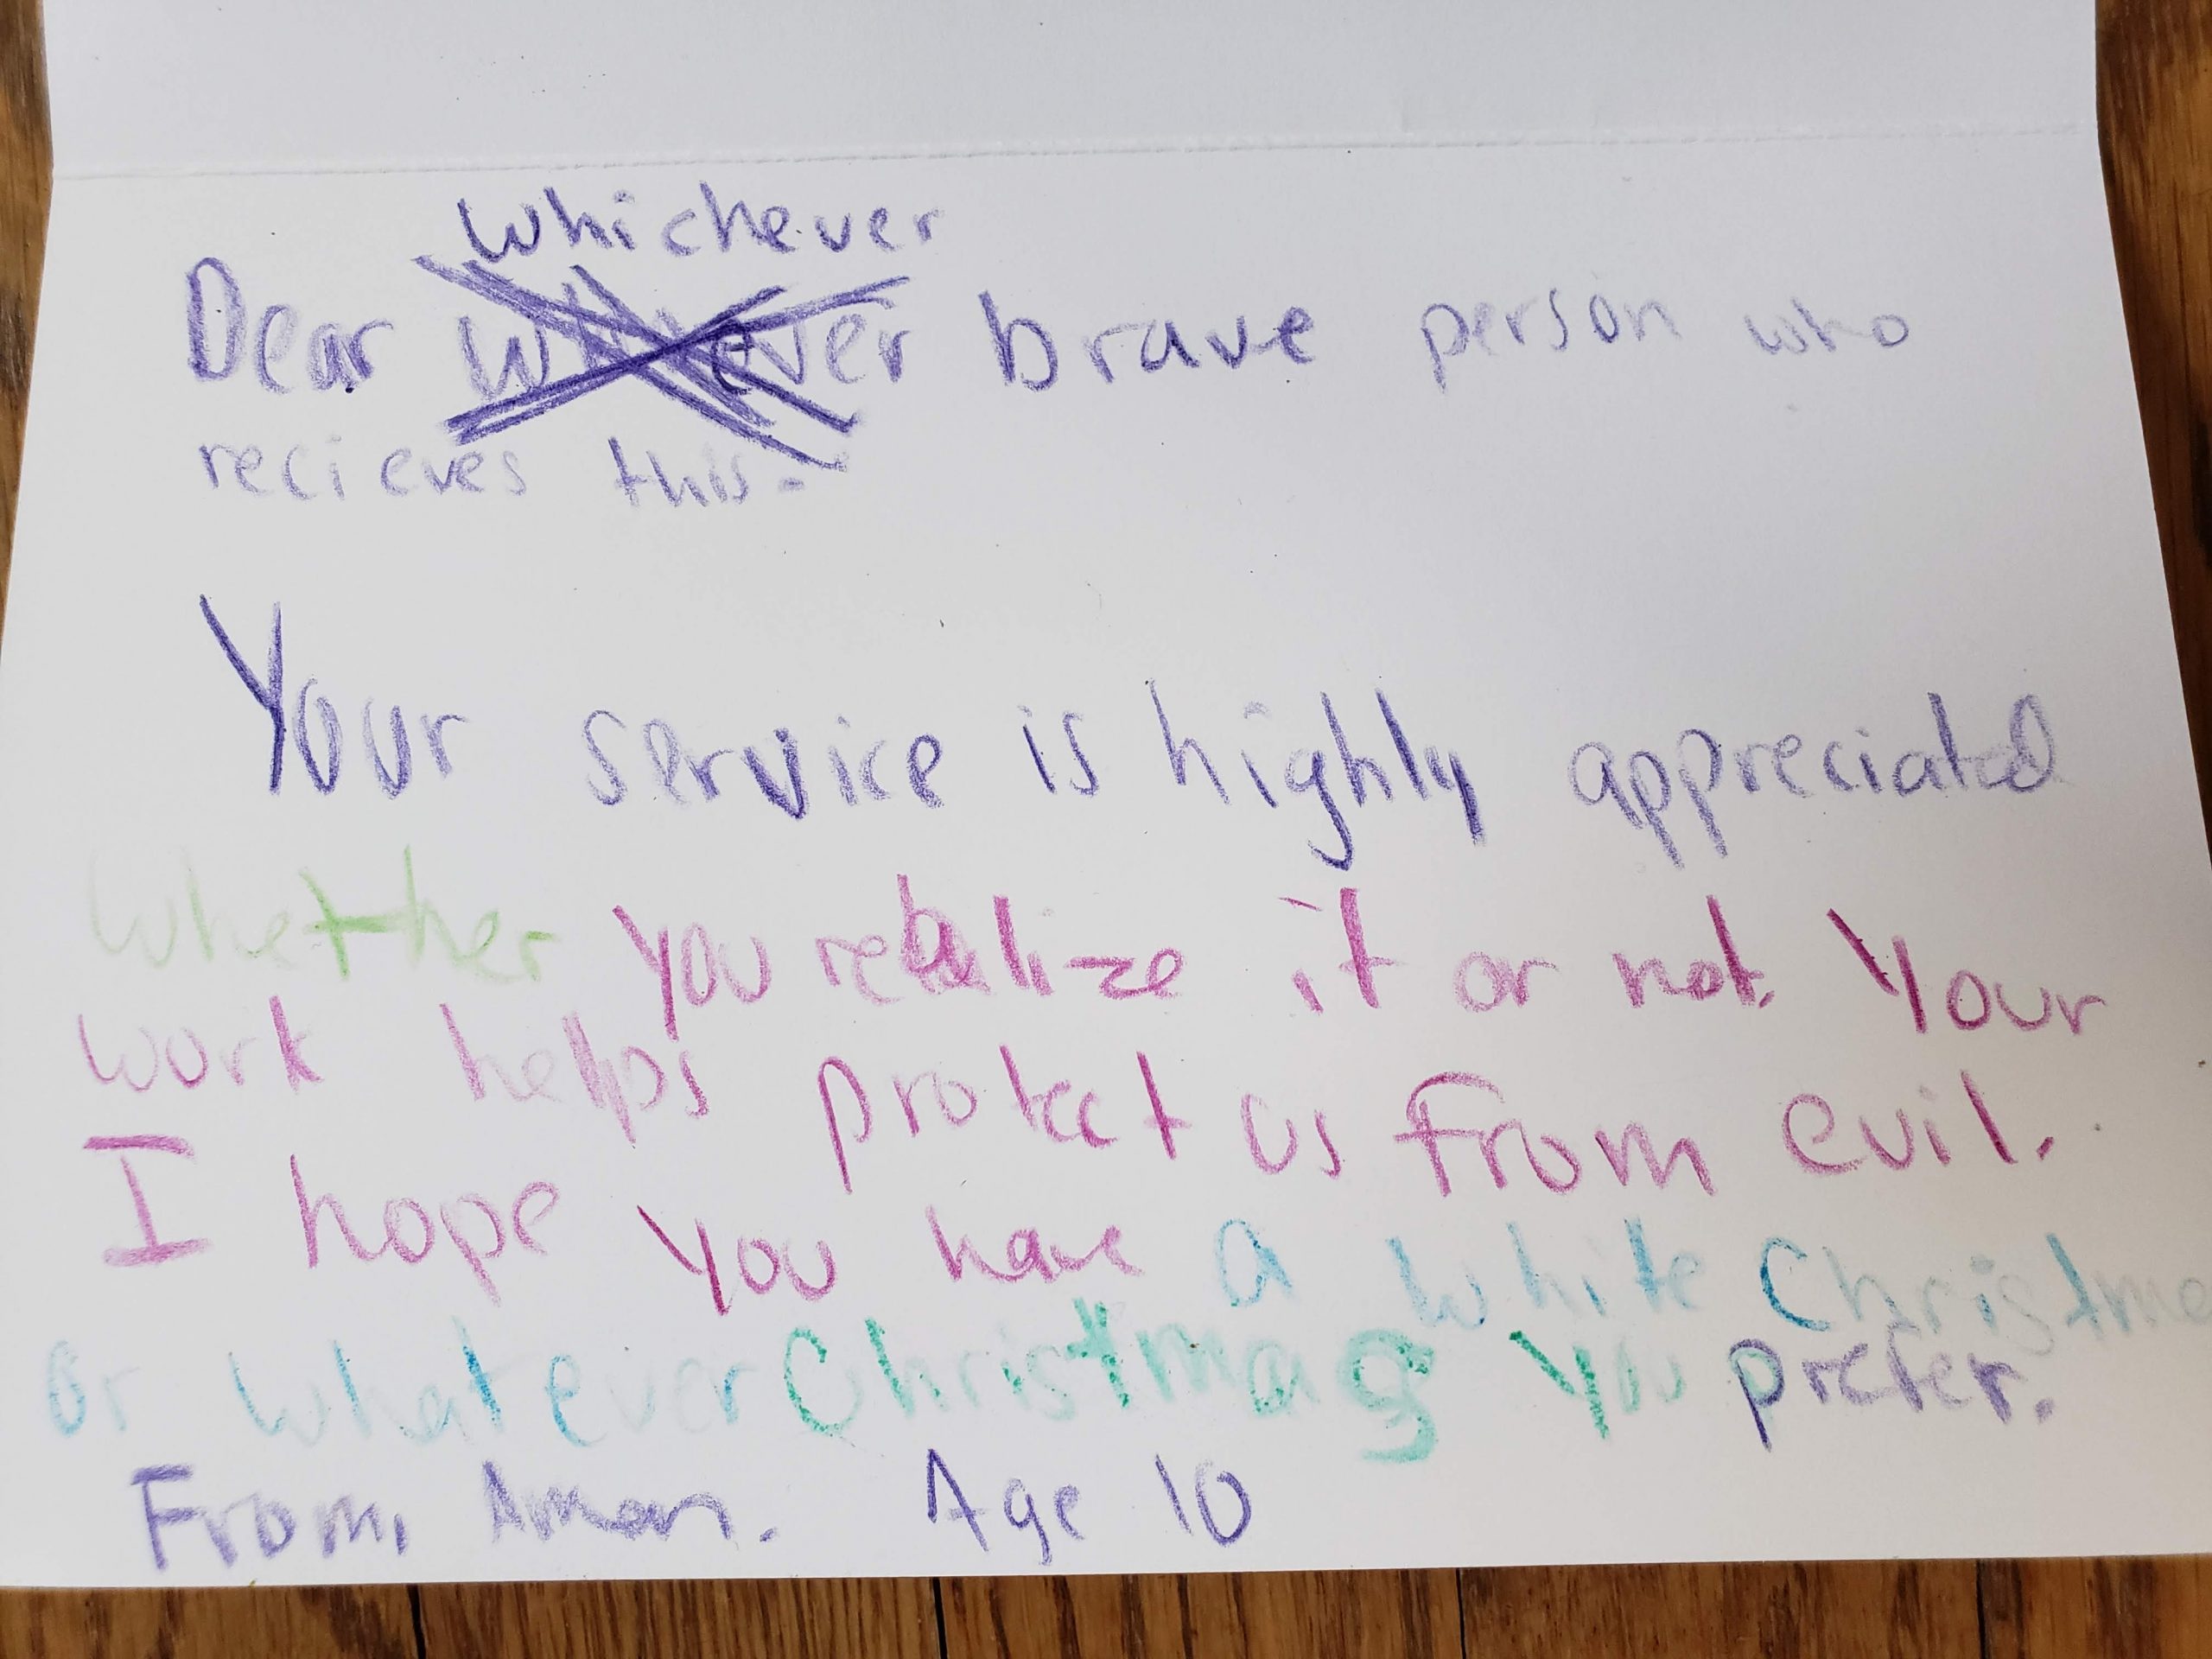 Whichever
Dear brave person who
recieves this.
Your service is highly appreciated
Whether you realize it or not. Your
work helps protect us From evil.
I hope you have a white Christma
or whatever Christmas you prefer.
From, Aman. Age 10